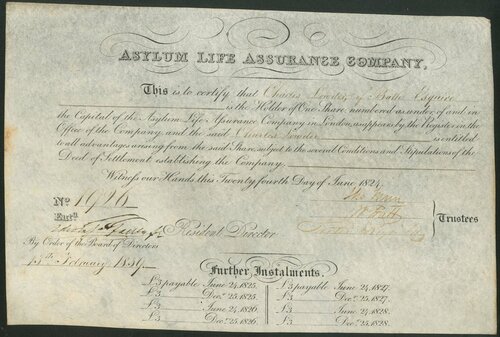 ASYLUM LIFE ASSURANCE COMPANY.
This is to certify that Charles of Bath Esquire
is the Holder of One Share numbered as under of and in
the Capital of the Asylum Life Assurance Company in London as appears by the Register in the
Office of the Company, and the said Charles is entitled
to all advantages arising from the said Share, subject to the several Conditions and Stipulations of the
Deed of Settlement establishing the Company.
Witness our Hands this Twenty fourth Day of June 1824.
No. 1926
Trustees
Entd.
Resident Director
By Order of the Board of Directors
15th February 1839
Further Instalments.
£3 payable June 24, 1825. £3 payable June 24, 1827.
£3 Decr. 25, 1825. £3 Decr. 25, 1827.
£3 June 24, 1826. £3 June 24, 1828.
£3 Decr. 25, 1826. £3 Decr. 25, 1828.